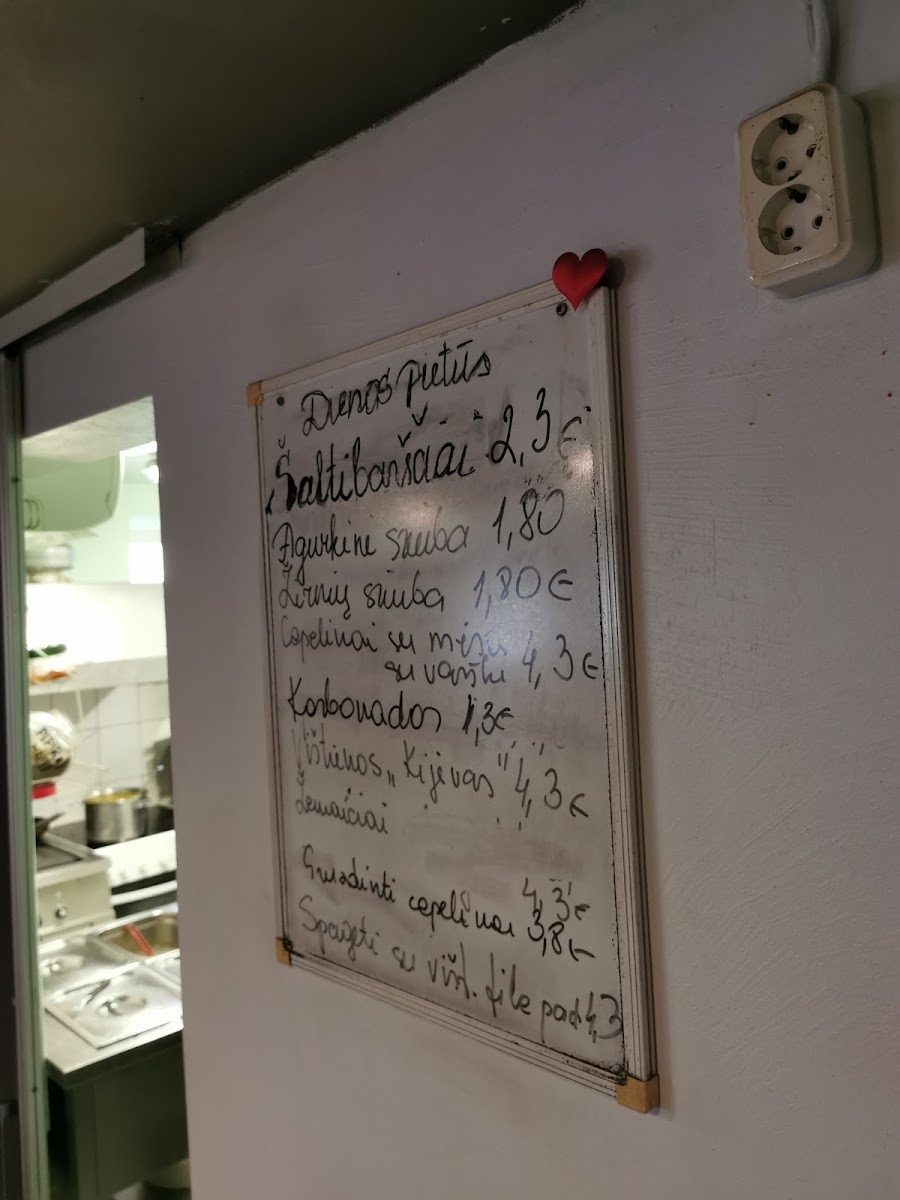 Dienos pietūs
Šaltibarščiai 2,3€
Agurkinė sriuba 1,80
Žirnių sriuba 1,80€
Cepelinai su mėsa
su varške 4,3€
Karbonados 4,3€
Vištienos „Kijevas" 4,3€
Žemaičiai
4,3€
Gruzdinti cepelinai 3,8€
Spageti su višt. file pad 4,3